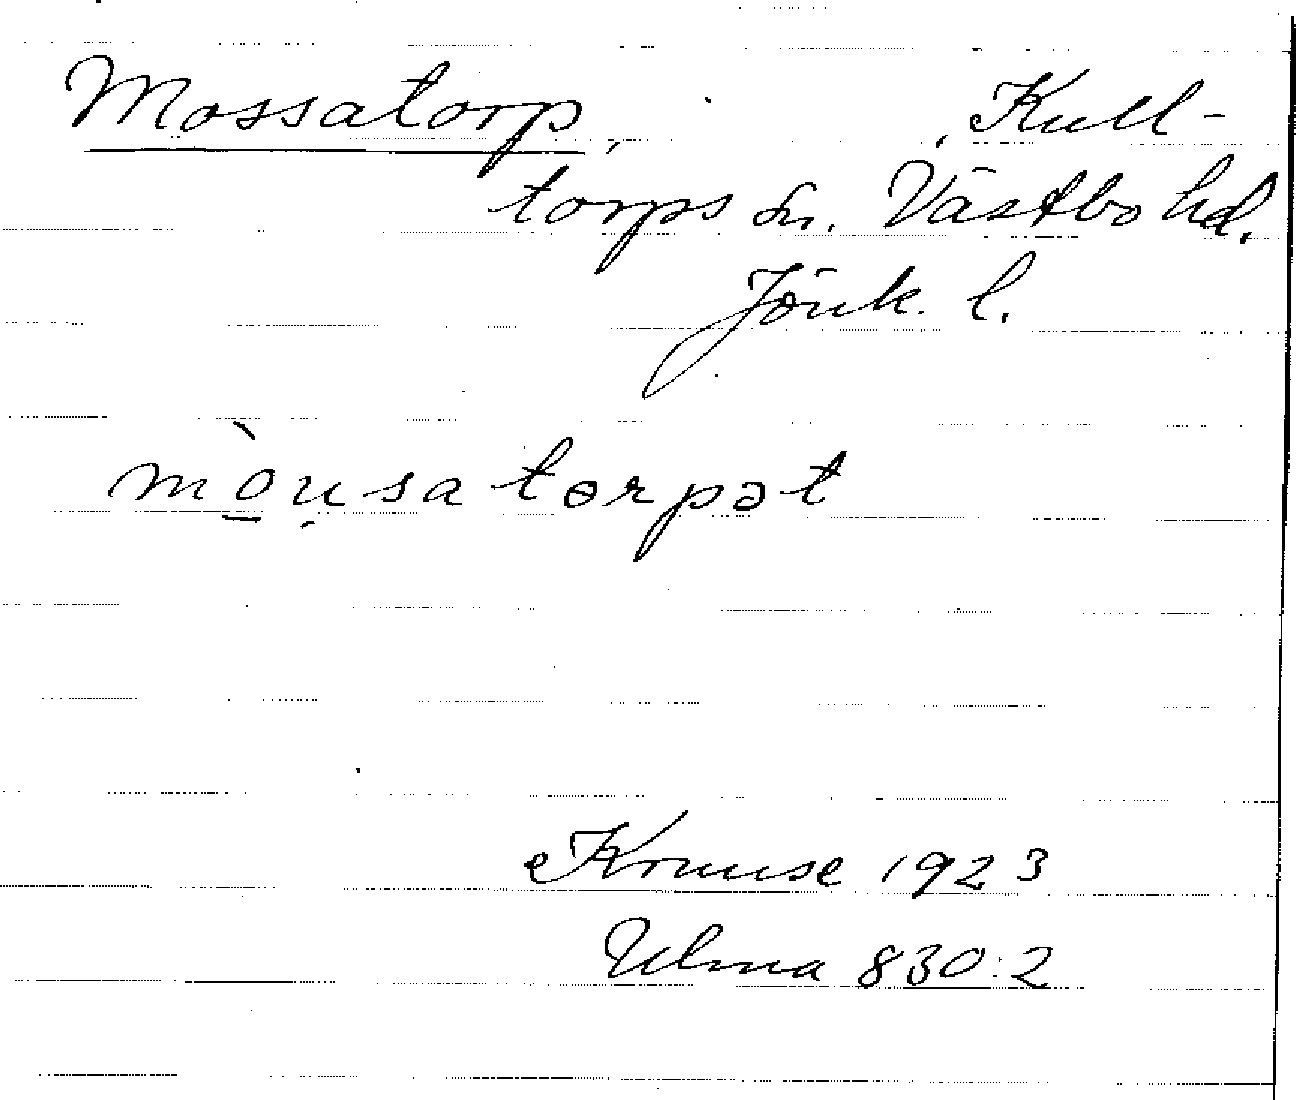 Mossatorp, Kull-
torps sn. Västbo hd.
Jönk. l.
mò̱ụsatɵrpət
Kruuse 1923
Ulma 830:2